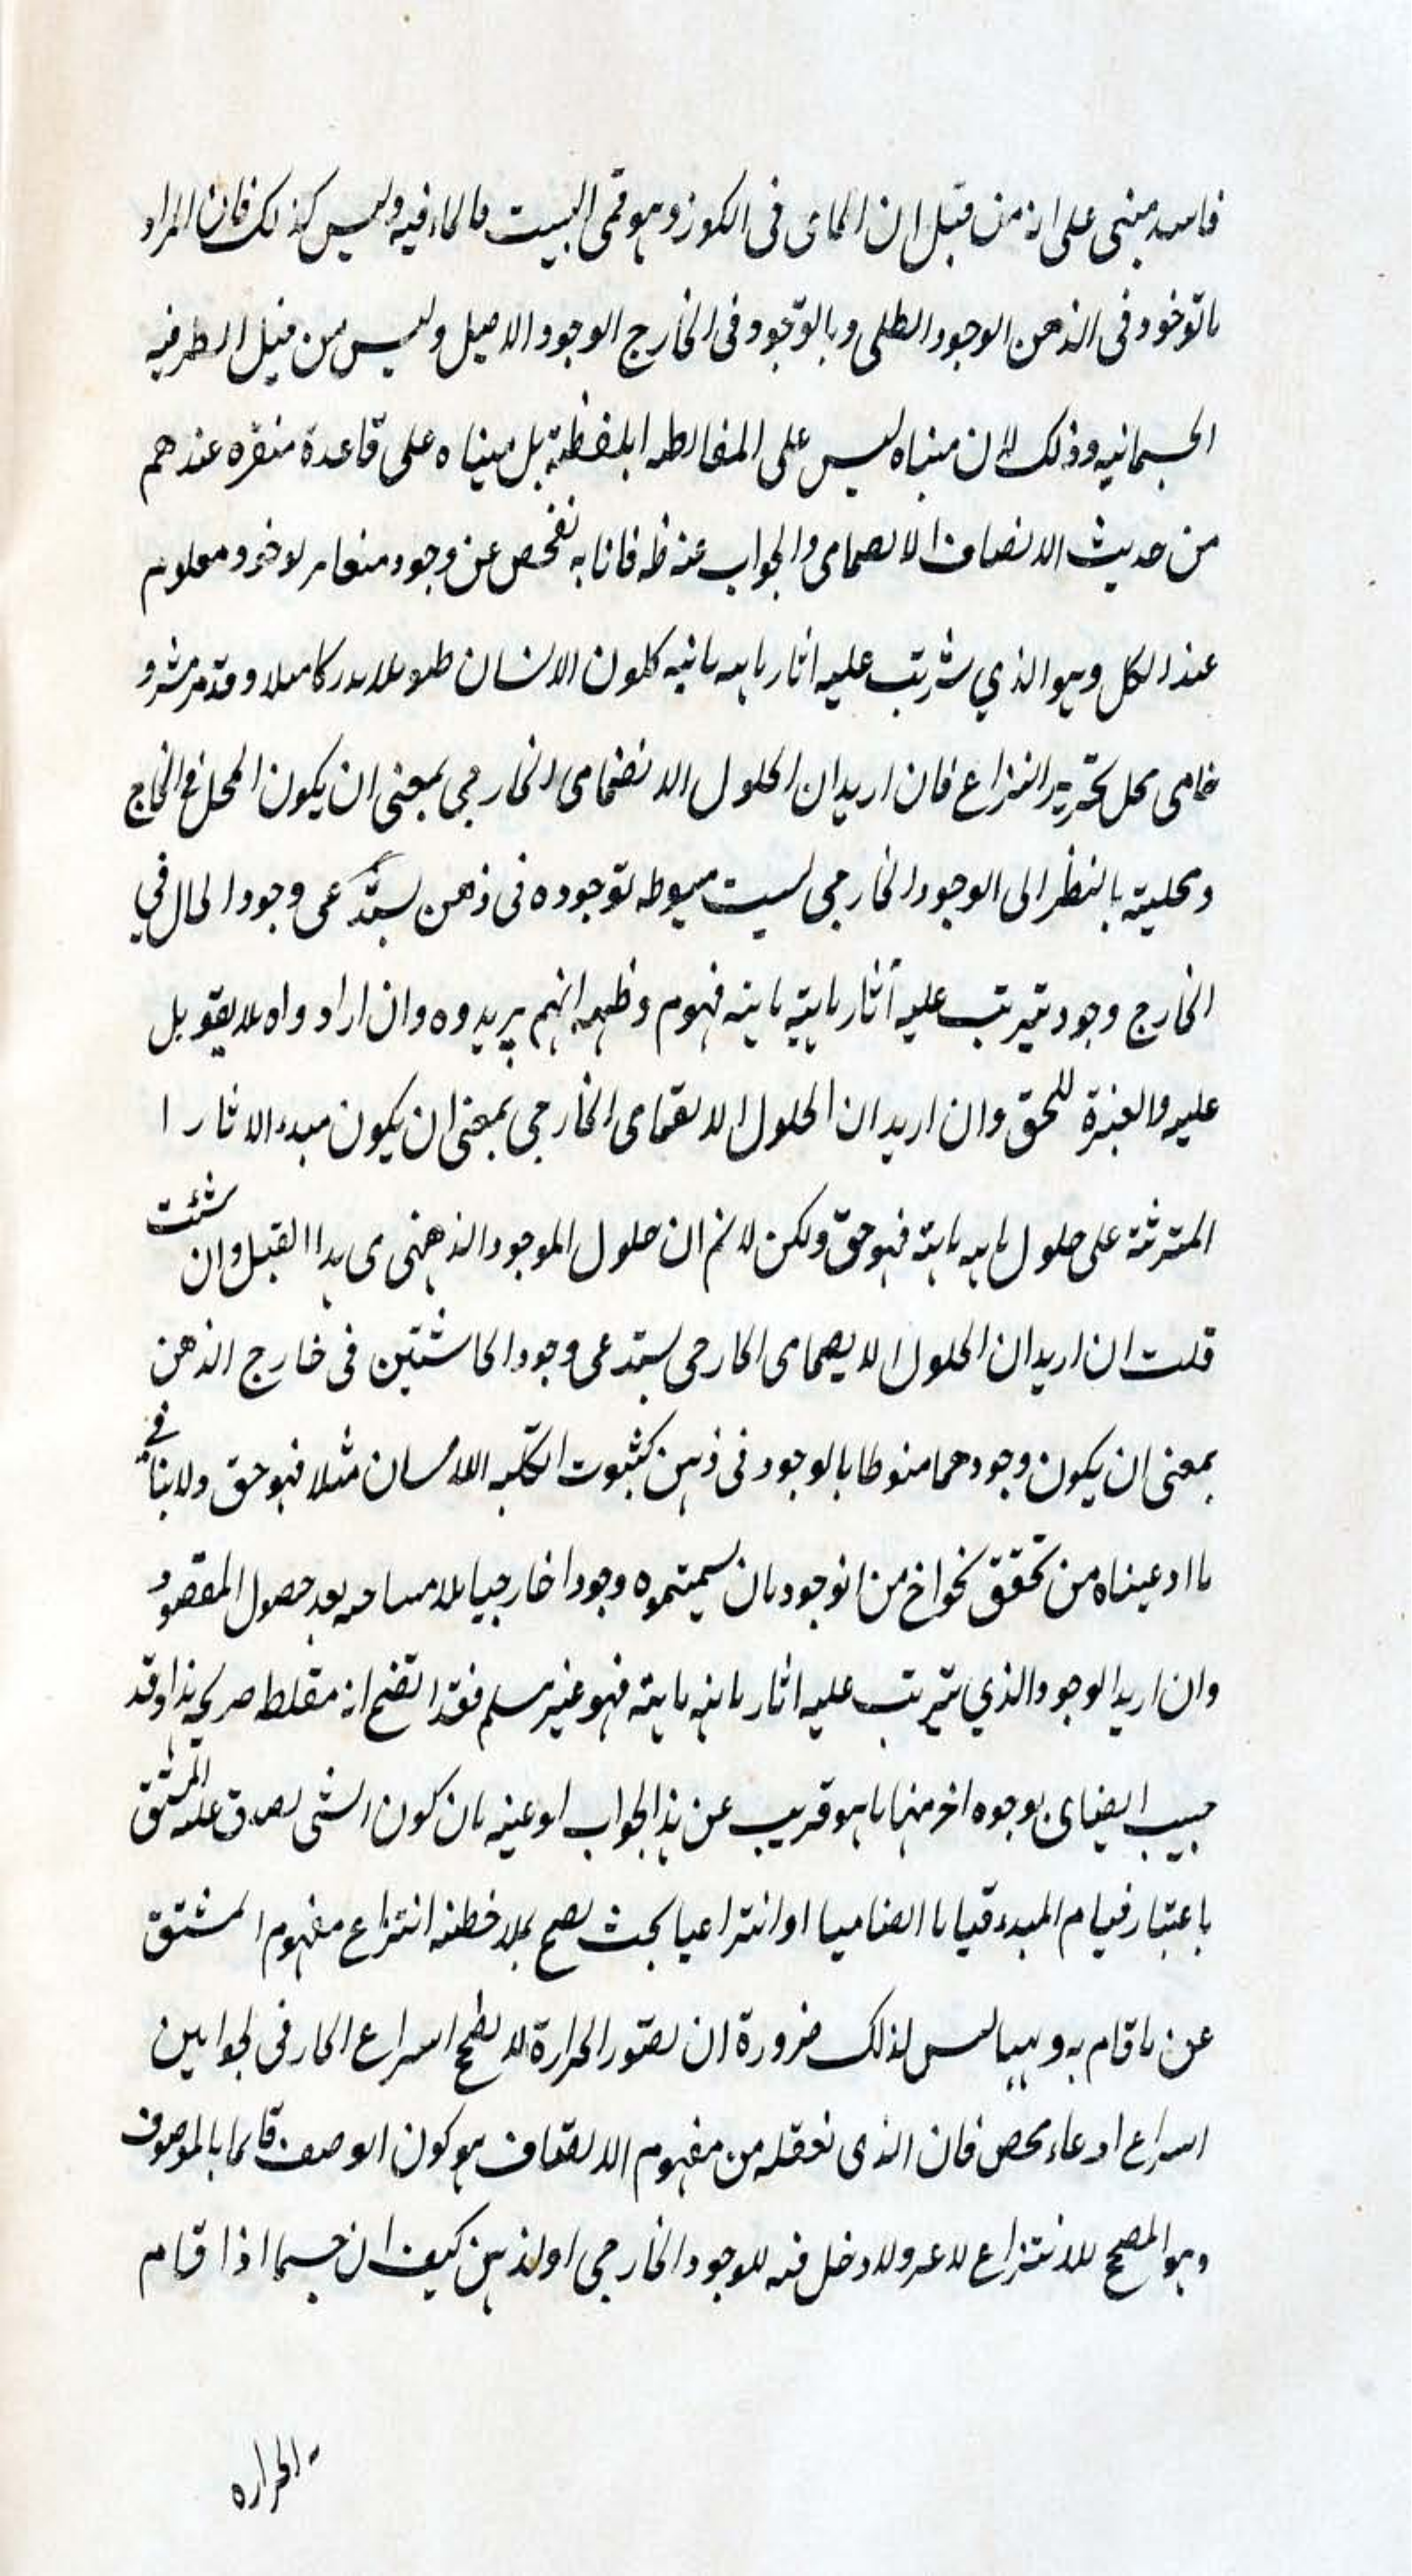 فاسد مبنى على انه من قبيل ان الماء فى الكوز وهو فى البيت فالماء فيه وليس كذلك فان المراد
بالوجود فى الذهن الوجود الظلى وبالوجود فى الخارج الوجود الاصيل وليس من قبيل الظرفيه
الجسمانيه وذلك لان مبناه ليس على المغالطه اللفظية بل مبناه على قاعدة متقرره عندهم
من حديث الاتصاف الانضمامى والجواب عنه ظ فانا به نفحص عن وجود مغاير لوجود معلوم
عند الكل وهو الذي يترتب عليه اثار كلون الانسان وقد مر
فى محل تحرير النزاع فان اريد ان الحلول الانضمامى الخارجى بمعنى ان يكون المحل فى الخارج
ومحليته بالنظر الى الوجود الخارجى ليست منوطه بوجوده فى ذهن يستدعى وجود الحال في
الخارج وجود يترتب عليه آثار فهوم وظهر انهم يريدوه وان ارادواه فلا يعول
عليه والعبرة للحق وان اريد ان الحلول الانضمامى الخارجى بمعنى ان يكون مبدء الاثار ا
المترتبة على حلول فهو حق ولكن لا نم ان حلول الموجود الذهنى من هذا القبيل وان شئت
قلت ان اريد ان الحلول الانضمامى الخارجى يستدعى وجود الحاشيتين فى خارج الذهن
بمعنى ان يكون وجودهما منوطا بالوجود فى ذهن كثبوت الكتبه للانسان مثلا فهو حق ولا ينافي
ما ادعيناه من تحقق نحو اخر من الوجود فان سميتموه وجودا خارجيا فلا مشاحه بعد حصول المقصود
وان اريد الوجود الذي يترتب عليه اثار فهو غير مسلم فقد اتضح انه مغلطه صريحه هذا وقد
اجيب ايضا بوجوه اخر منها ما هو قريب عن هذا الجواب او عينه بان كون الشى يصدق عليه المشتق
باعتبار قيام المبدء قياما انضماميا او انتزاعيا بحيث يصح بملاحظته انتزاع مفهوم المشتق
عن ما قام به وهيهنا ليس كذلك ضرورة ان تصور الحرارة لا يصحح انتزاع الحار فى الجوابين
انتزاع ادعاء محض فان الذى نعقله من مفهوم الاتصاف هو كون الوصف قائما بالموصوف
وهو المصحح للانتزاع لا غير ولا دخل فيه للوجود الخارجى او لذهن كيف ان جسما اذا قام
الحراره